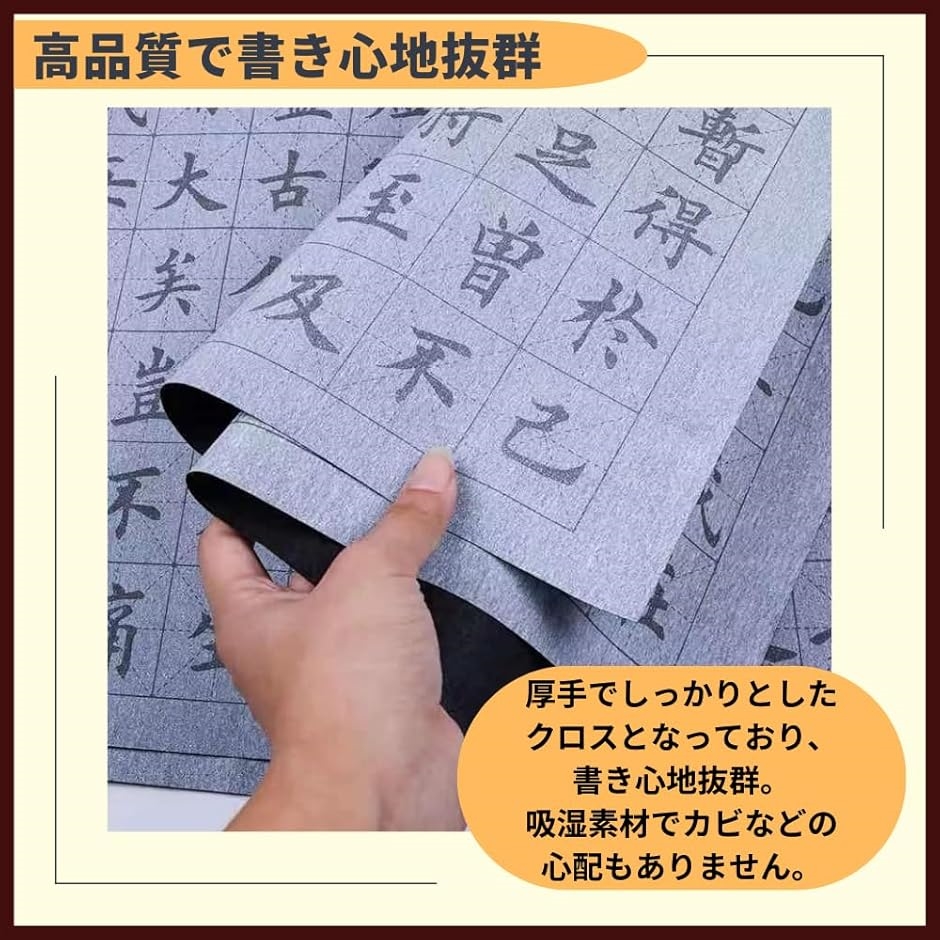 高品質で書き心地抜群
暫得於己
足曽不
将至及
古
大矣豈不痛
厚手でしっかりとした
クロスとなっており、
書き心地抜群。
吸湿素材でカビなどの
心配もありません。